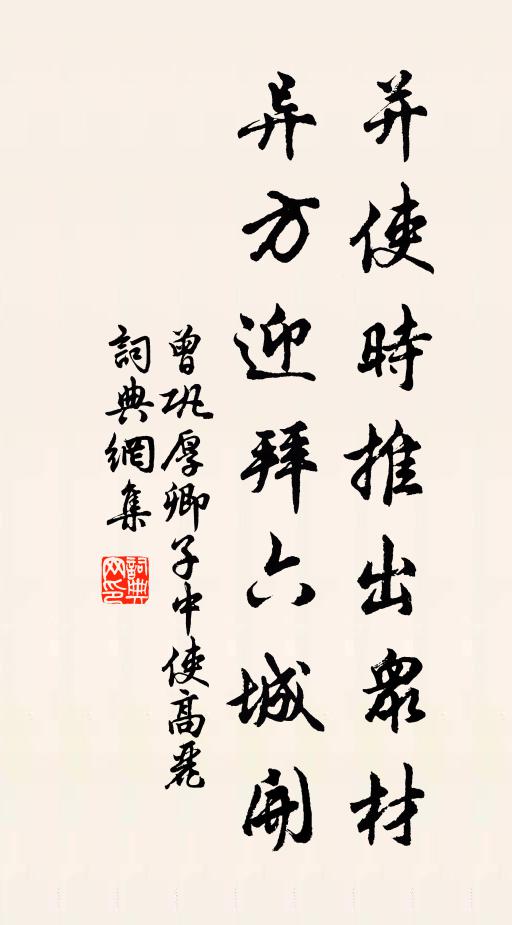 并使時推出眾材
异方迎拜六城開
曾巩厚卿子中使高麗
詞典網集
詞典網印